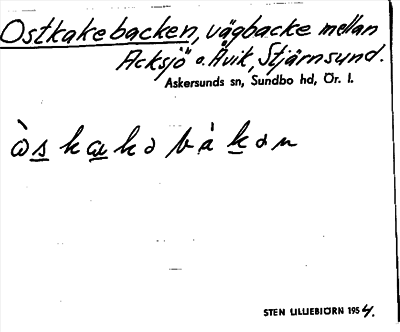 Ostkakebacken, vägbacke mellan
Acksjö o. Åvik, Stjärnsund.
Askersunds sn, Sundbo hd, Ör. l.
òskakobàkən
STEN LILLIEBJÖRN 1954.